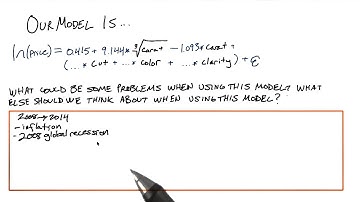 OUR MODEL IS...
ln(price) = 0.415 + 9.144 * ∛carat - 1.093 * carat +
(... * cut + ... * color + ... * clarity) + ε
WHAT COULD BE SOME PROBLEMS WHEN USING THIS MODEL? WHAT
ELSE SHOULD WE THINK ABOUT WHEN USING THIS MODEL?
2008 → 2014
- inflation
- 2008 global recession